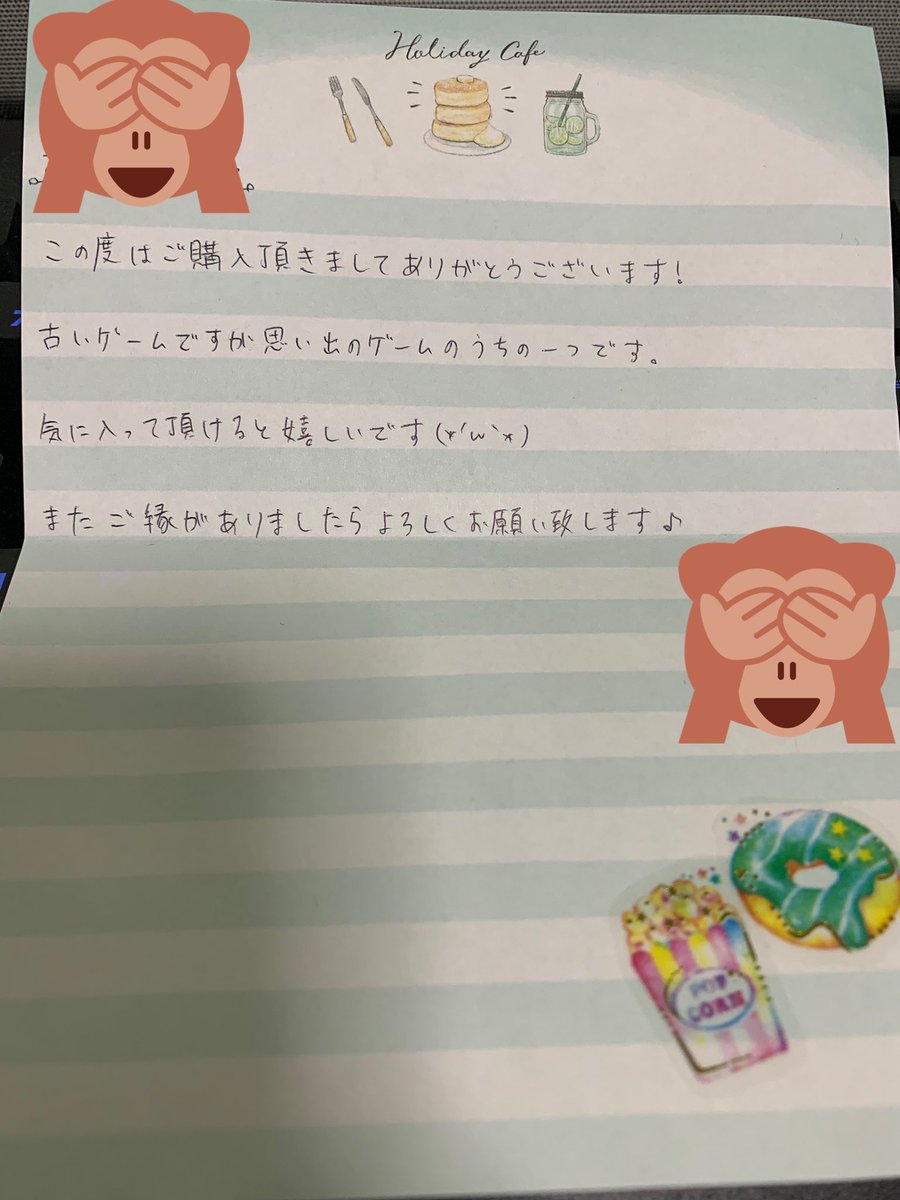 Holiday Cafe
この度はご購入頂きましてありがとうございます!
古いゲームですが思い出のゲームのうちの一つです。
気に入って頂けると嬉しいです(*´ω`*)
またご縁がありましたらよろしくお願い致します♪
POP
CORN